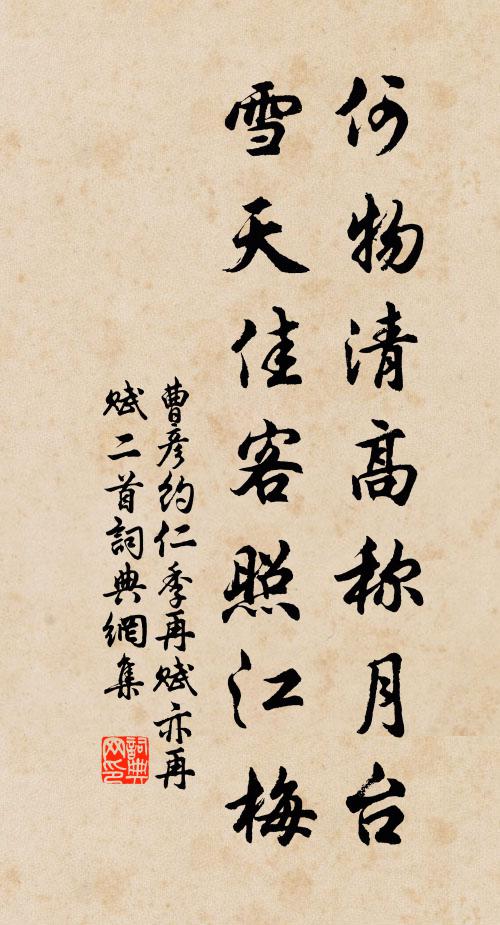 何物清高称月台
雪天佳客照江梅
曹彦约仁季再赋亦再
赋二首詞典網集
詞典網印